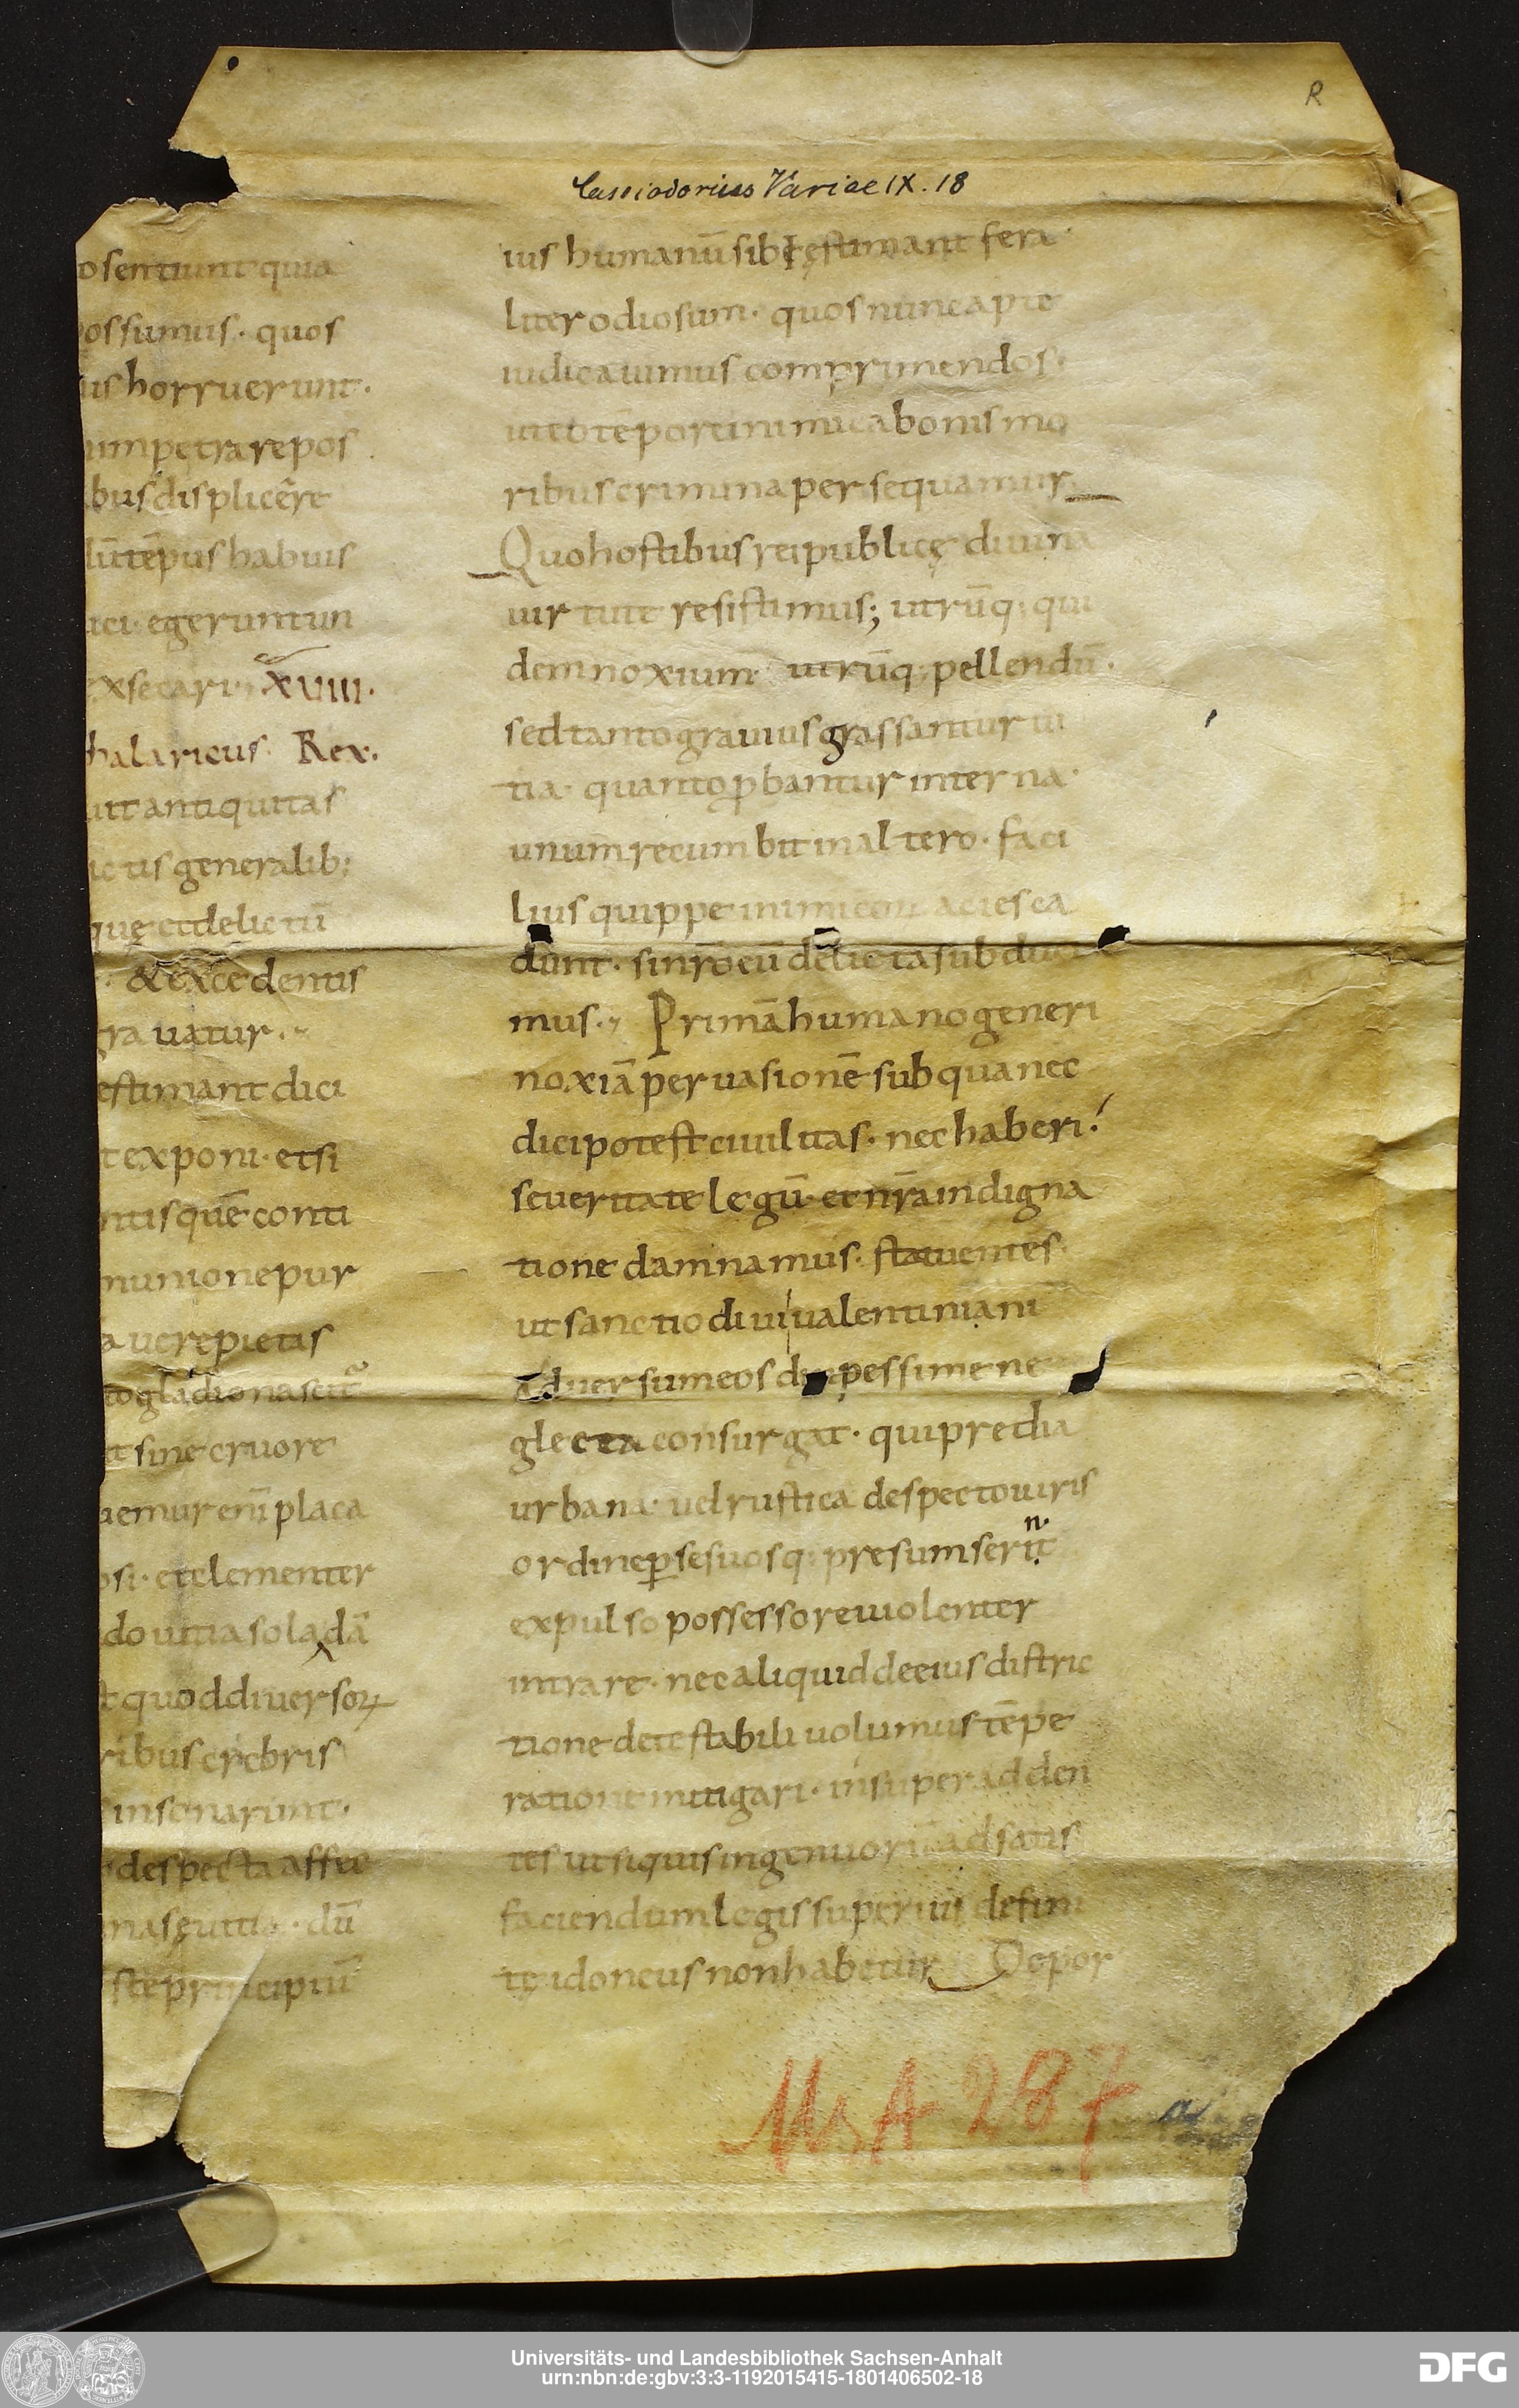 R
Cassiodorius Variae IX. 18
osentiunt quia
ossumus · quos
us horruerunt ·
impetrare pos
bus displicēre
lū tēpus habuis
ici · egerunt un
xsecari · XVIIII ·
halaricus · Rex ·
uit antiquitas
ictis generalib;
quę et delictū
· & excedentis
grauatur ·
estimant dici
t exponi · etsi
ntis quē conti
munione pur
a uere pietis
to gladio nascit᷑
it sine cruore
uemur eni placa
osi · et clementer
do uitia sola dā
t quod diuersoꝝ
ribus crebris
insonarunt ·
despecta affec
na sęuitia · dū
ste principiū
ius humanū sibi ęstimant fera
liter odiosum · quos nunc a pie
iudicauimus comprimendos ·
ut obtēpcrti inimica bonis mo
ribus crimina persequamur
Quo hostibus reipublicę diuina
uirtute resistimus; utrūq; qui
dem noxium · utrūq; pellendū ·
sed tanto grauius grassantur ui
tia · quanto ꝓbantur interna ·
unum recumbit in altero · faci
lius quippe inimicorū acies ca
dunt · si nr̄orū delicta subdu
mus · Primā humano generi
noxiā peruasionē sub qua nec
dici potest ciuilitas · nec haberi ·
seueritate legū et nr̄a indigna
tione damnamus · statuentes ·
ut sanctio diui ualentiniani
aduersum eos diu pessime ne
glecta consurgat · qui predia
urbana · uel rustica despecto iuris
ordine ꝑ se suosq; presumserit
n ·
expulso possessore uiolenter
intrare · nec aliquid de eius distric
tione detestabili uolumus tēpe
ratione mitigari · insuper adden
tes ut si quis ingenuorū ad satis
faciendum legis superius defini
tę idoneus non habetur Depor
Ms A 287
a
Universitäts- und Landesbibliothek Sachsen-Anhalt
urn:nbn:de:gbv:3:3-1192015415-1801406502-18
DFG